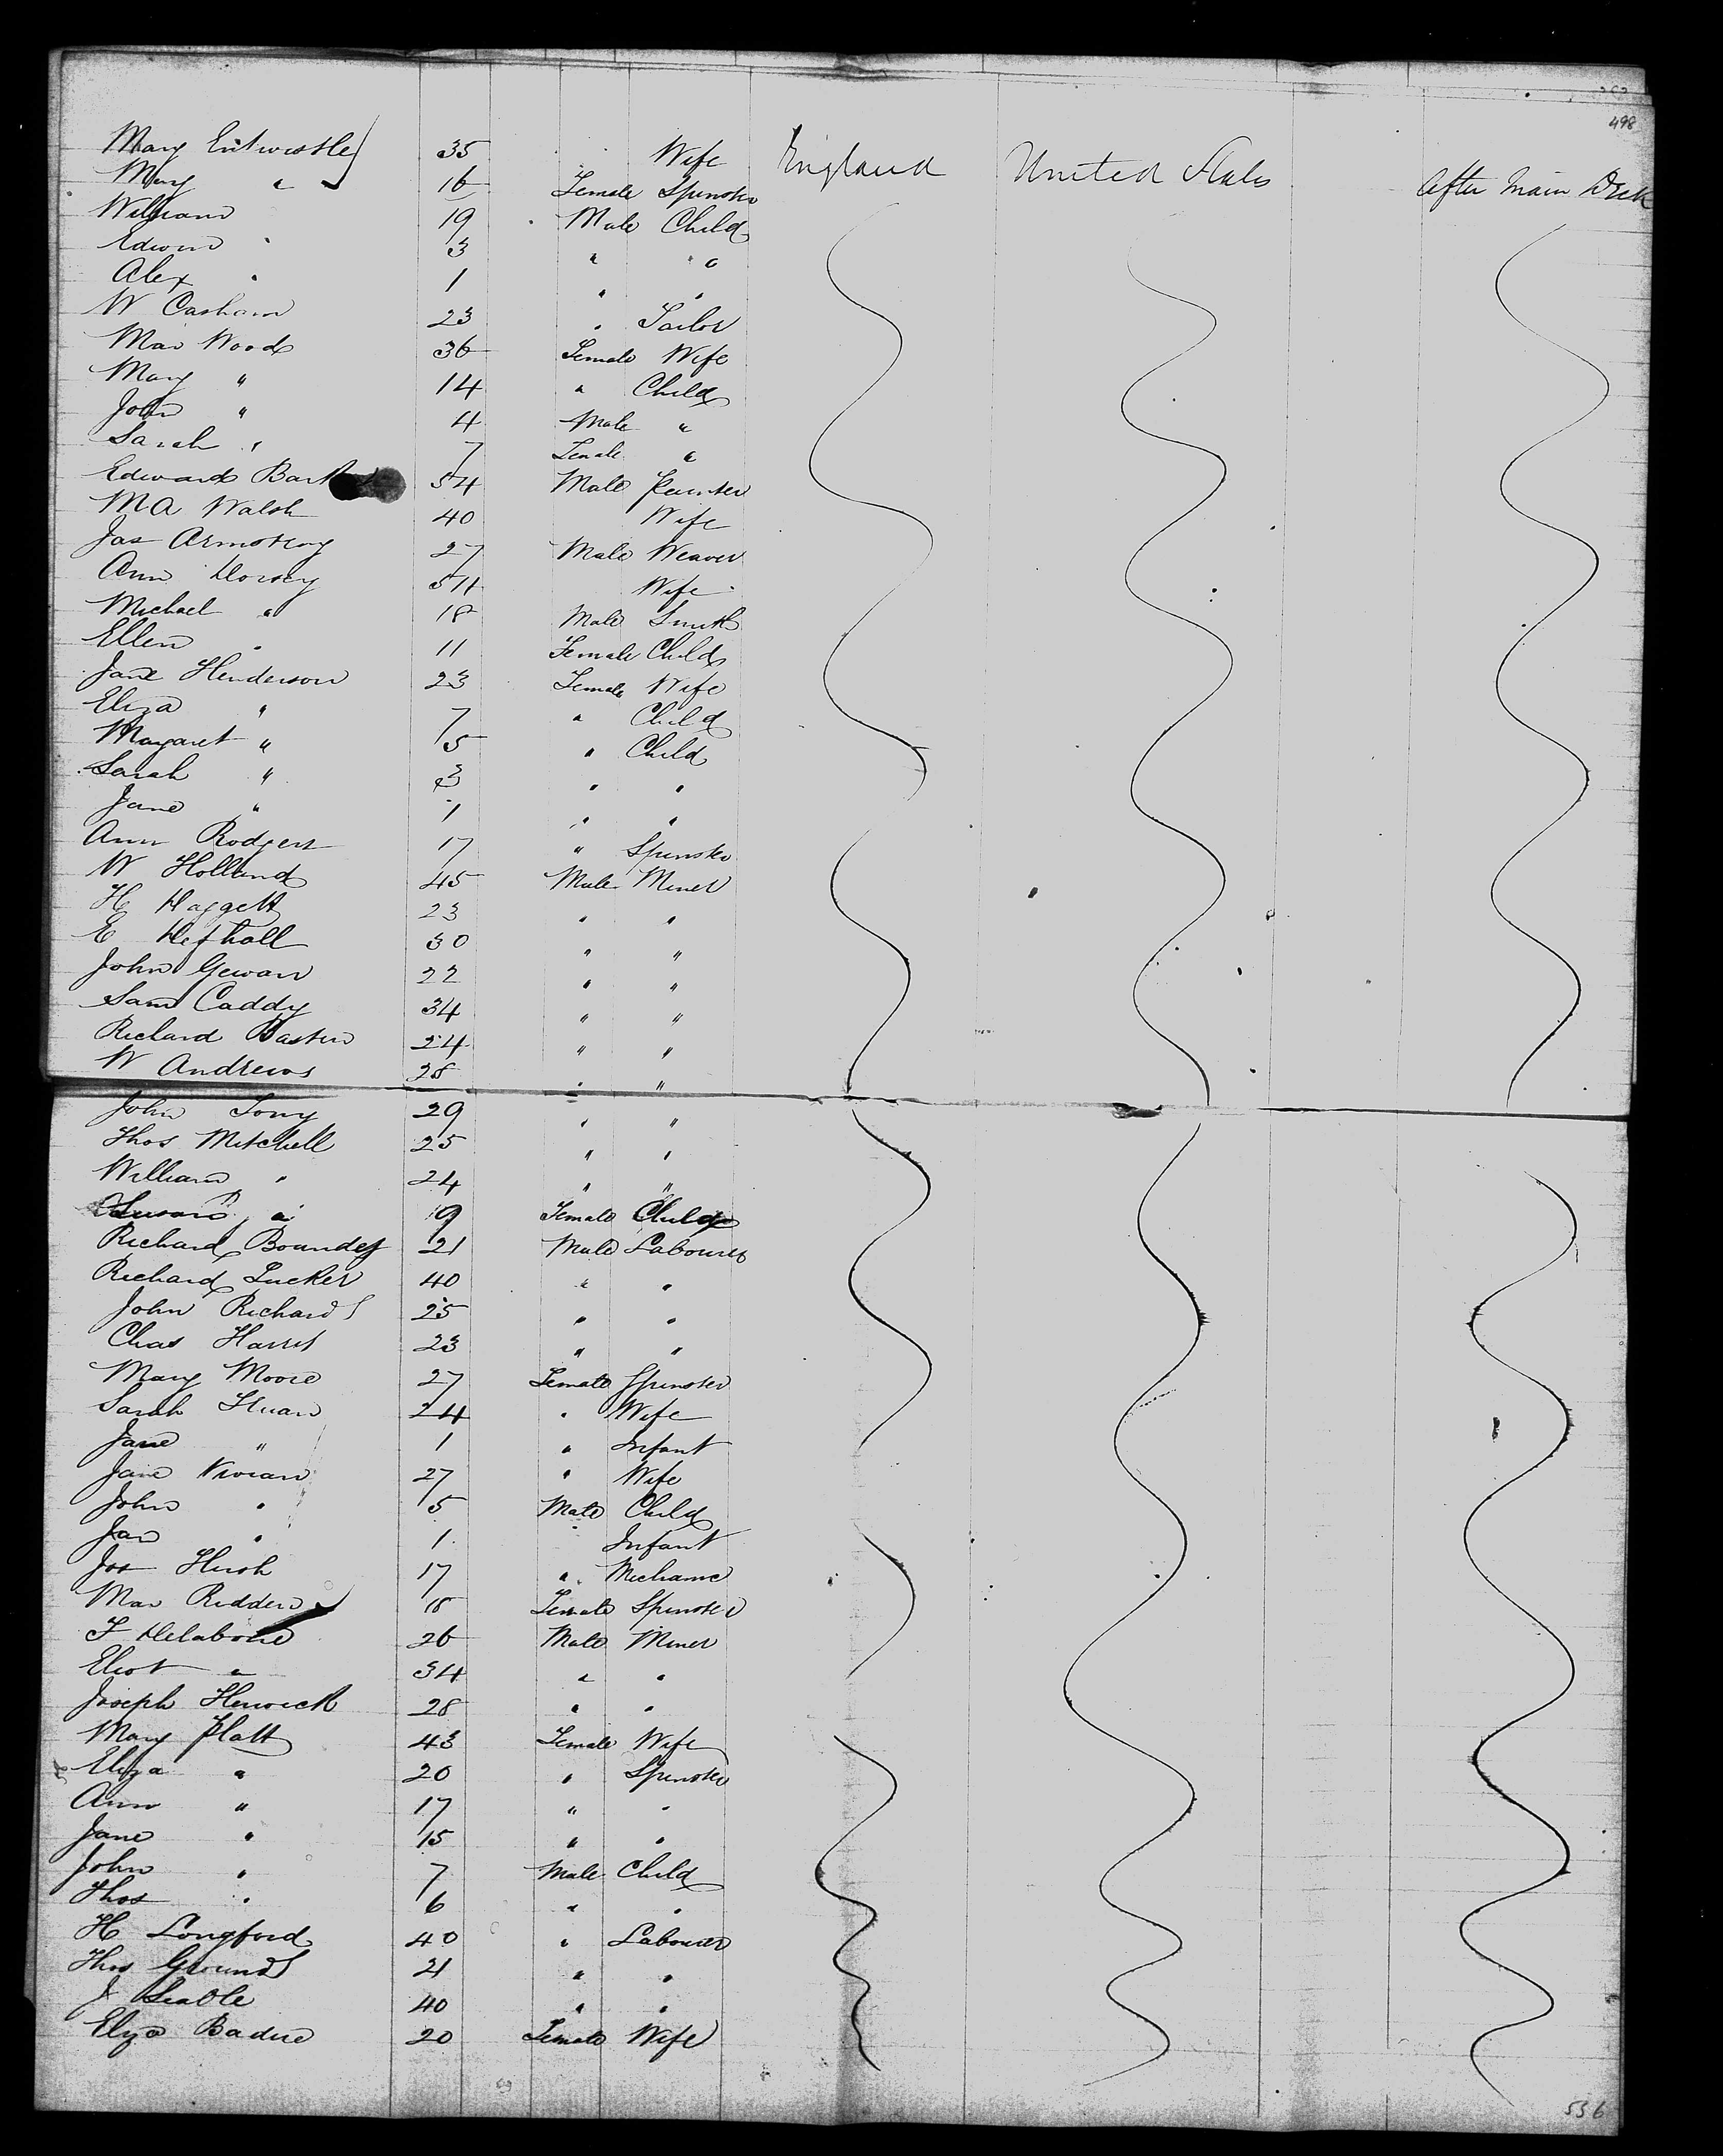 498
Mary Entwistle 35 Wife England United States After Main Deck
Mary " 16 Female Spinster
William 19 Male Child
Edwin " 3 " "
Alex " 1 " "
W Casham 23 " Tailor
Mar Wood 36 Female Wife
Mary " 14 " Child
John " 4 Male "
Sarah " 7 Female "
Edward 54 Male Painter
M A Walsh 40 Wife
Jas Armstrong 27 Male Weaver
Ann Dorsey 54 Wife
Michael " 18 Male Smith
Ellen " 11 Female Child
Jane Henderson 23 Female Wife
Eliza " 7 " Child
Margaret " 5 " Child
Sarah " 3 " "
Jane " 1 " "
Ann Rodgers 17 " Spinster
W Holland 45 Male Miner
H Daggett 23 " "
E 30 " "
John Gewan 22 " "
Sam Caddy 34 " "
Richard Bastin 24 " "
W Andrews 28 " "
John Tony 29 " "
Thos Mitchell 25 " "
William " 24 " "
Susan " 19 Female Child
Richard 21 Male Labourer
Richard Tucker 40 " "
John Richards 25 " "
Chas Harris 23 " "
Mary Moore 27 Female Spinster
Sarah 24 " Wife
Jane " 1 " Infant
Jane Vivian 27 " Wife
John " 5 Male Child
Jas " 1 Infant
Jos Hush 17 " Mechanic
Mar Redden 18 Female Spinster
F Delabole 26 Male Miner
Eliot " 34 " "
Joseph Henwick 28 " "
Mary Platt 43 Female Wife
Eliza " 20 " Spinster
Ann " 17 " "
Jane " 15 " "
John " 7 Male Child
Thos " 6 " "
H Longford 40 " Labourer
Thos Grounds 21 " "
J 40 " "
Eliza Badue 20 Female Wife
536